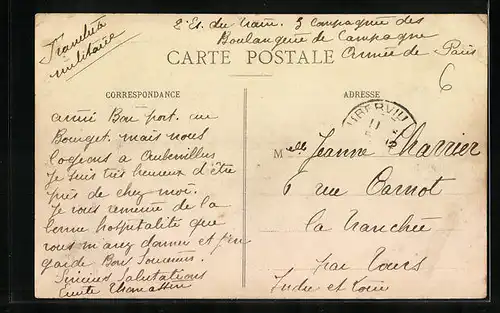 Franchise
militaire
2e Es. du train. 3 Compagnie des
Boulangerie de Campagne
Armée de Paris
CARTE POSTALE
6
CORRESPONDANCE
arrivé Bon port. au
Bourget. mais nous
logeons a Aubervillier
Je suis très heureux d'être
près de chez moi.
Je vous remercie de la
bonne hospitalité que
vous m'avez donner et j'en
garde Bons Souvenirs.
Sincères Salutations
ADRESSE
AUBERVILL
11
15
Melle Jeanne Charrier
6 rue Carnot
la Tranchée
par Tours
Indre et Loire